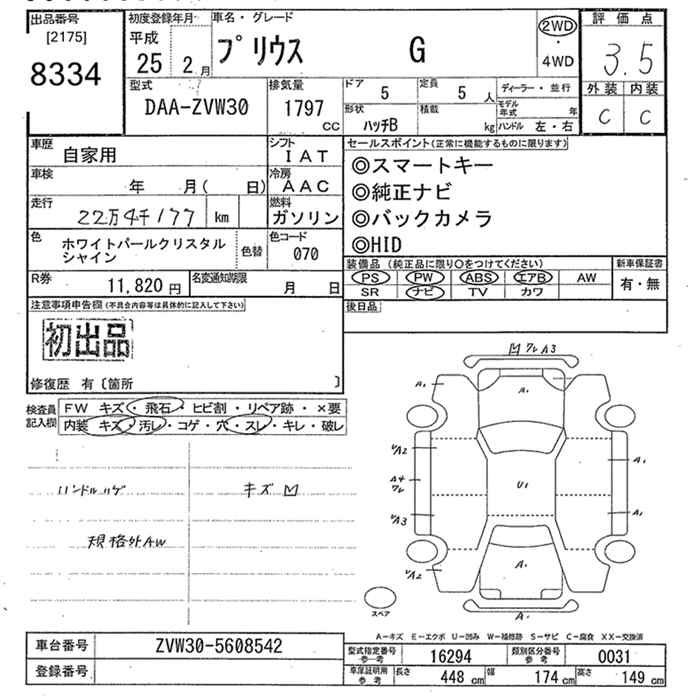 出品番号
[2175]
8334
初度登録年月
平成
25 2 月
車名・グレード
プリウス G
2WD
・
4WD
評価点
3.5
外装 内装
C C
型式
DAA-ZVW30
排気量
1797
CC
ドア
5
定員
5 人
形状
ハッチB
積載
kg
ディーラー・並行
モデル年式 年
ハンドル 左・右
車歴
自家用
シフト
IAT
車検
年 月( 日)
冷房
AAC
走行
22万4千177 km
燃料
ガソリン
色
ホワイトパールクリスタル
シャイン
色替
色コード
070
R券
11,820 円
名変通知期限
月 日
セールスポイント(正常に機能するものに限ります)
◎スマートキー
◎純正ナビ
◎バックカメラ
◎HID
装備品 (純正品に限り○をつけてください)
PS PW ABS エアB AW
SR ナビ TV カワ
新車保証書
有・無
後日品
注意事項申告欄(不具合内容等は具体的に記入して下さい)
初出品
修復歴 有〔箇所 〕
検査員
記入欄
FW キズ・飛石・ヒビ割・リペア跡・×要
内装 キズ・汚レ・コゲ・穴・スレ・キレ・破レ
ハンドルハゲ
キズ M
規格外AW
M ワレ A3
A1
A1
VA2
A4
ワレ
VA3
VA2
U1
A1
A1
A1
A1
スペア
A-キズ E-エクボ U-凹み W-補修跡 S-サビ C-腐食 XX-交換済
車台番号
ZVW30-5608542
登録番号
型式指定番号
参考
16294
類別区分番号
参考
0031
車庫証明用
参考
長さ 448 cm 幅 174 cm 高さ 149 cm